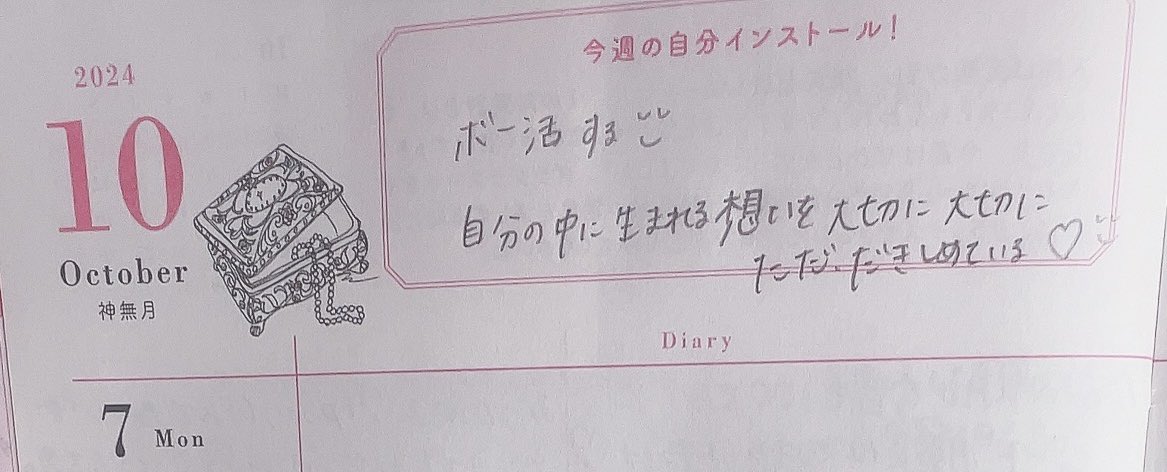 2024
10
October
神無月
今週の自分インストール!
ボー活する
自分の中に生まれる想いを大切に大切に
ただ、だきしめている♡
Diary
7 Mon